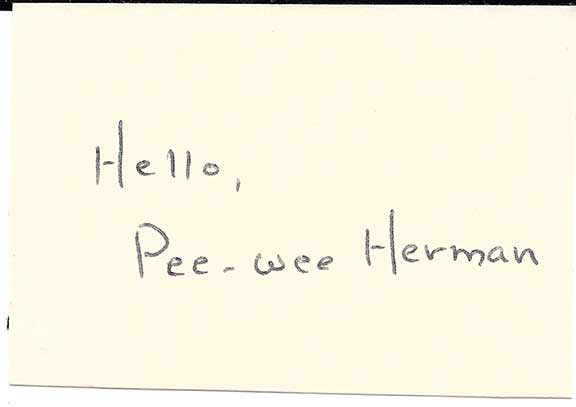 Hello,
Pee-wee Herman